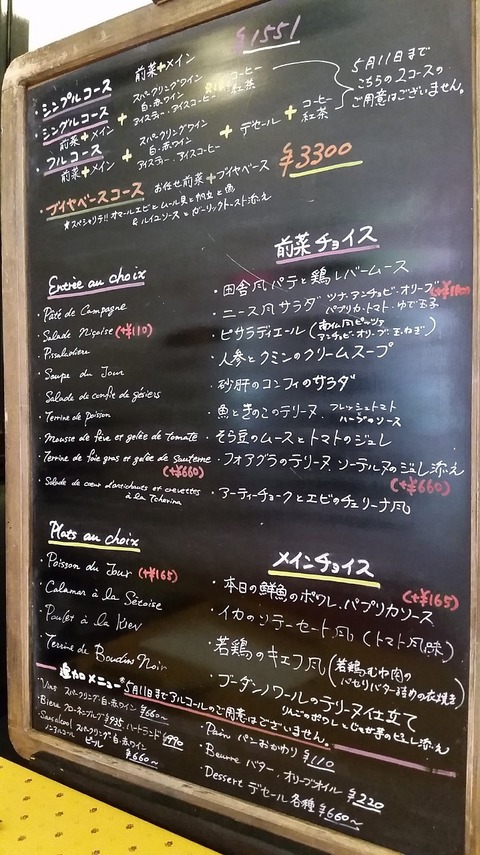 ¥1551
・シンプルコース 前菜+メイン
・シングルコース 前菜+メイン + スパークリングワイン 白・赤ワイン アイスティー、アイスコーヒー コーヒー 紅茶
・フルコース 前菜+メイン + スパークリングワイン 白・赤ワイン アイスティー・アイスコーヒー + デセール + コーヒー 紅茶
5月11日まで
こちらの2コースの
ご用意はございません。
・ブイヤベースコース お任せ前菜+ブイヤベース ¥3300
★スペシャリテ!! オマールエビとムール貝と帆立と魚
& ルイユソースとガーリックトースト添え
Entrée au choix
・Pâté de Campagne
・Salade Niçoise (+¥110)
・Pissaladière
・Soupe du Jour
・Salade de confit de gésiers
・Terrine de poisson
・Mousse de fève et gelée de tomate
・Terrine de foie gras et gelée de Sauterne
(+¥660)
・Salade de cœur d'artichauts et crevettes
à la Tcherina
前菜チョイス
・田舎風パテと鶏レバームース
・ニース風サラダ ツナ・アンチョビ・オリーブ パプリカ・トマト・ゆで玉子 (+¥110)
・ピサラディエール (南仏風ピッツァ アンチョビ・オリーブ・玉ねぎ)
・人参とクミンのクリームスープ
・砂肝のコンフィのサラダ
・魚ときのこのテリーヌ フレッシュトマト ハーブのソース
・そら豆のムースとトマトのジュレ
・フォアグラのテリーヌ ソーテルヌのジュレ添え
(+¥660)
・アーティーチョークとエビのチェリーナ風
Plats au choix
・Poisson du Jour (+¥165)
・Calamar à la Sétoise
・Poulet à la Kiev
・Terrine de Boudin Noir
メインチョイス
・本日の鮮魚のポワレ、パプリカソース (+¥165)
・イカのソテーセート風 (トマト風味)
・若鶏のキエフ風 (若鶏むね肉の パセリバター詰めの衣焼き)
・ブーダンノワールのテリーヌ仕立て
りんごのポワレとじゃが芋のピュレ添え
追加メニュー ※5月11日までアルコールのご用意はございません。
・Vins スパークリング・白・赤ワイン ¥660～
・Bière クローネンブルグ ¥935 ハートランド ¥990
・Sans alcool スパークリング・白・赤ワイン
ノンアルコール ビール ¥660～
・Pain パンおかわり ¥110
・Beurre バター、オリーブオイル ¥220
・Dessert デセール各種 ¥660～